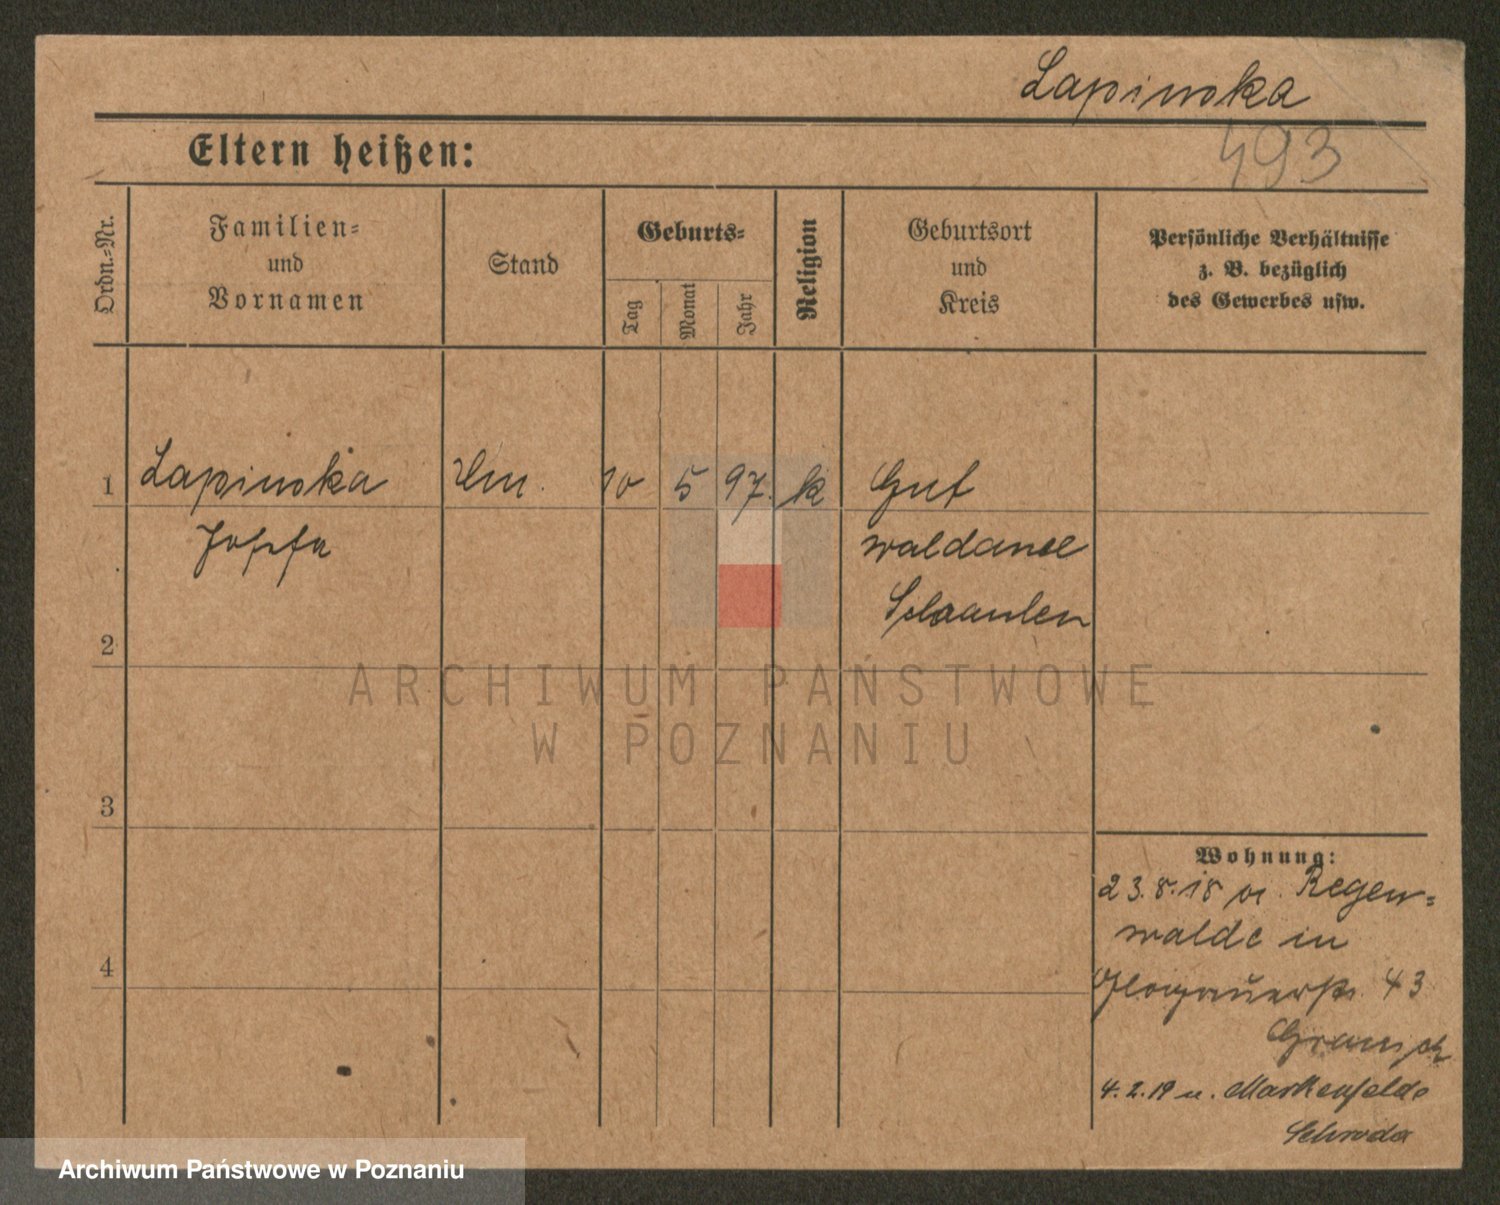 Lapinska
493
Eltern heißen:
Ordn.=Nr.
Familien=
und
Vornamen
Stand
Geburts=
Tag
Monat
Jahr
Religion
Geburtsort
und
Kreis
Persönliche Verhältnisse
z. B. bezüglich
des Gewerbes usw.
1 Lapinska 10 5 97. k Gut
Josefa waldanee
2
3
4
Wohnung:
23.8.18 v. Regen=
walde in
Glogauerstr. 43
4.2.19 n. Markenfelde
Schroda
ARCHIWUM PAŃSTWOWE
W POZNANIU
Archiwum Państwowe w Poznaniu